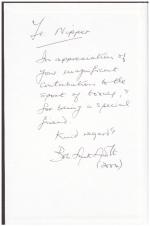 To Nipper
In appreciation of
your magnificent
contribution to the
sport of boxing, &
for being a special
friend.
Kind regards
Bob
(2002)